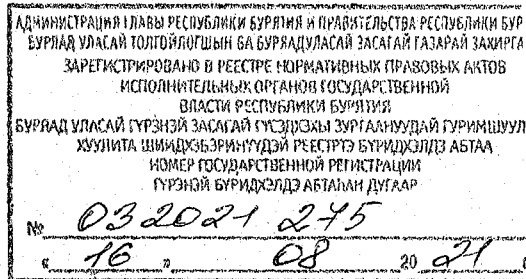 АДМИНИСТРАЦИЯ ГЛАВЫ РЕСПУБЛИКИ БУРЯТИЯ И ПРАВИТЕЛЬСТВА РЕСПУБЛИКИ БУР
БУРЯАД УЛАСАЙ ТОЛГОЙЛОГШЫН БА БУРЯАД УЛАСАЙ ЗАСАГАЙ ГАЗАРАЙ ЗАХИРГА
ЗАРЕГИСТРИРОВАНО В РЕЕСТРЕ НОРМАТИВНЫХ ПРАВОВЫХ АКТОВ
ИСПОЛНИТЕЛЬНЫХ ОРГАНОВ ГОСУДАРСТВЕННОЙ
ВЛАСТИ РЕСПУБЛИКИ БУРЯТИЯ
БУРЯАД УЛАСАЙ ГҮРЭНЭЙ ЗАСАГАЙ ГҮЙСЭДХЭХЫ ЗУРГААНУУДАЙ ГУРИМШУУЛ
ХУУЛИТА РЕЕСТРТЭ БҮРИДХЭЛДЭ АБТАА
НОМЕР ГОСУДАРСТВЕННОЙ РЕГИСТРАЦИИ
ГҮРЭНЭЙ БҮРИДХЭЛДЭ АБТАҺАН ДУГААР
№ 032021 275
« 16 » 08 20 21